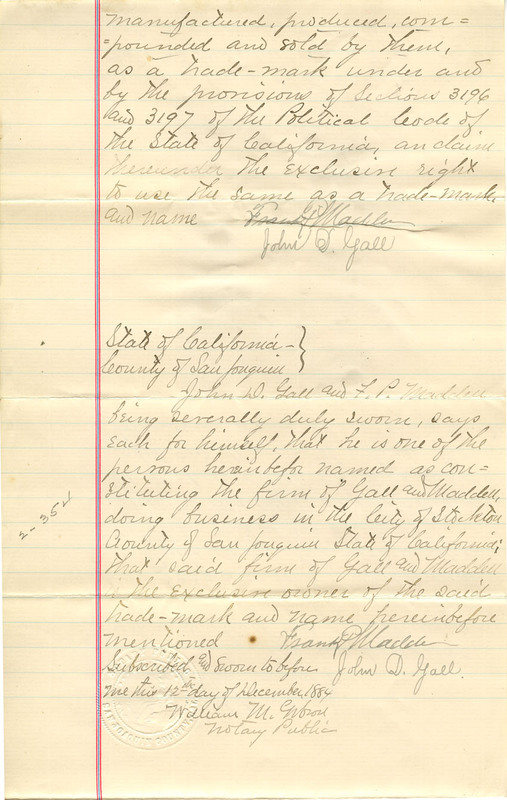 manufactured, produced, com=
=pounded and sold by them,
as a trade-mark under and
by the provisions of Sections 3196
and 3197 of the Political Code of
the State of California, an claim
thereunder the exclusive right
to use the same as a trade-mark
and name Frank P Madden
John D. Gall
State of California -}
County of San Joaquin }
John D. Gall and F. P. Madden
being severally duly sworn, says
each for himself, that he is one of the
persons hereinbefor named as con=
stituting the firm of Gall and Madden,
doing business in the City of Stockton
County of San Joaquin State of California;
that said firm of Gall and Madden
is the exclusive owner of the said
trade-mark and name hereinbefore
mentioned Frank P Madden
Subscribed and sworn to before John D. Gall.
me this 12th day of December, 1884
William M.
Notary Public